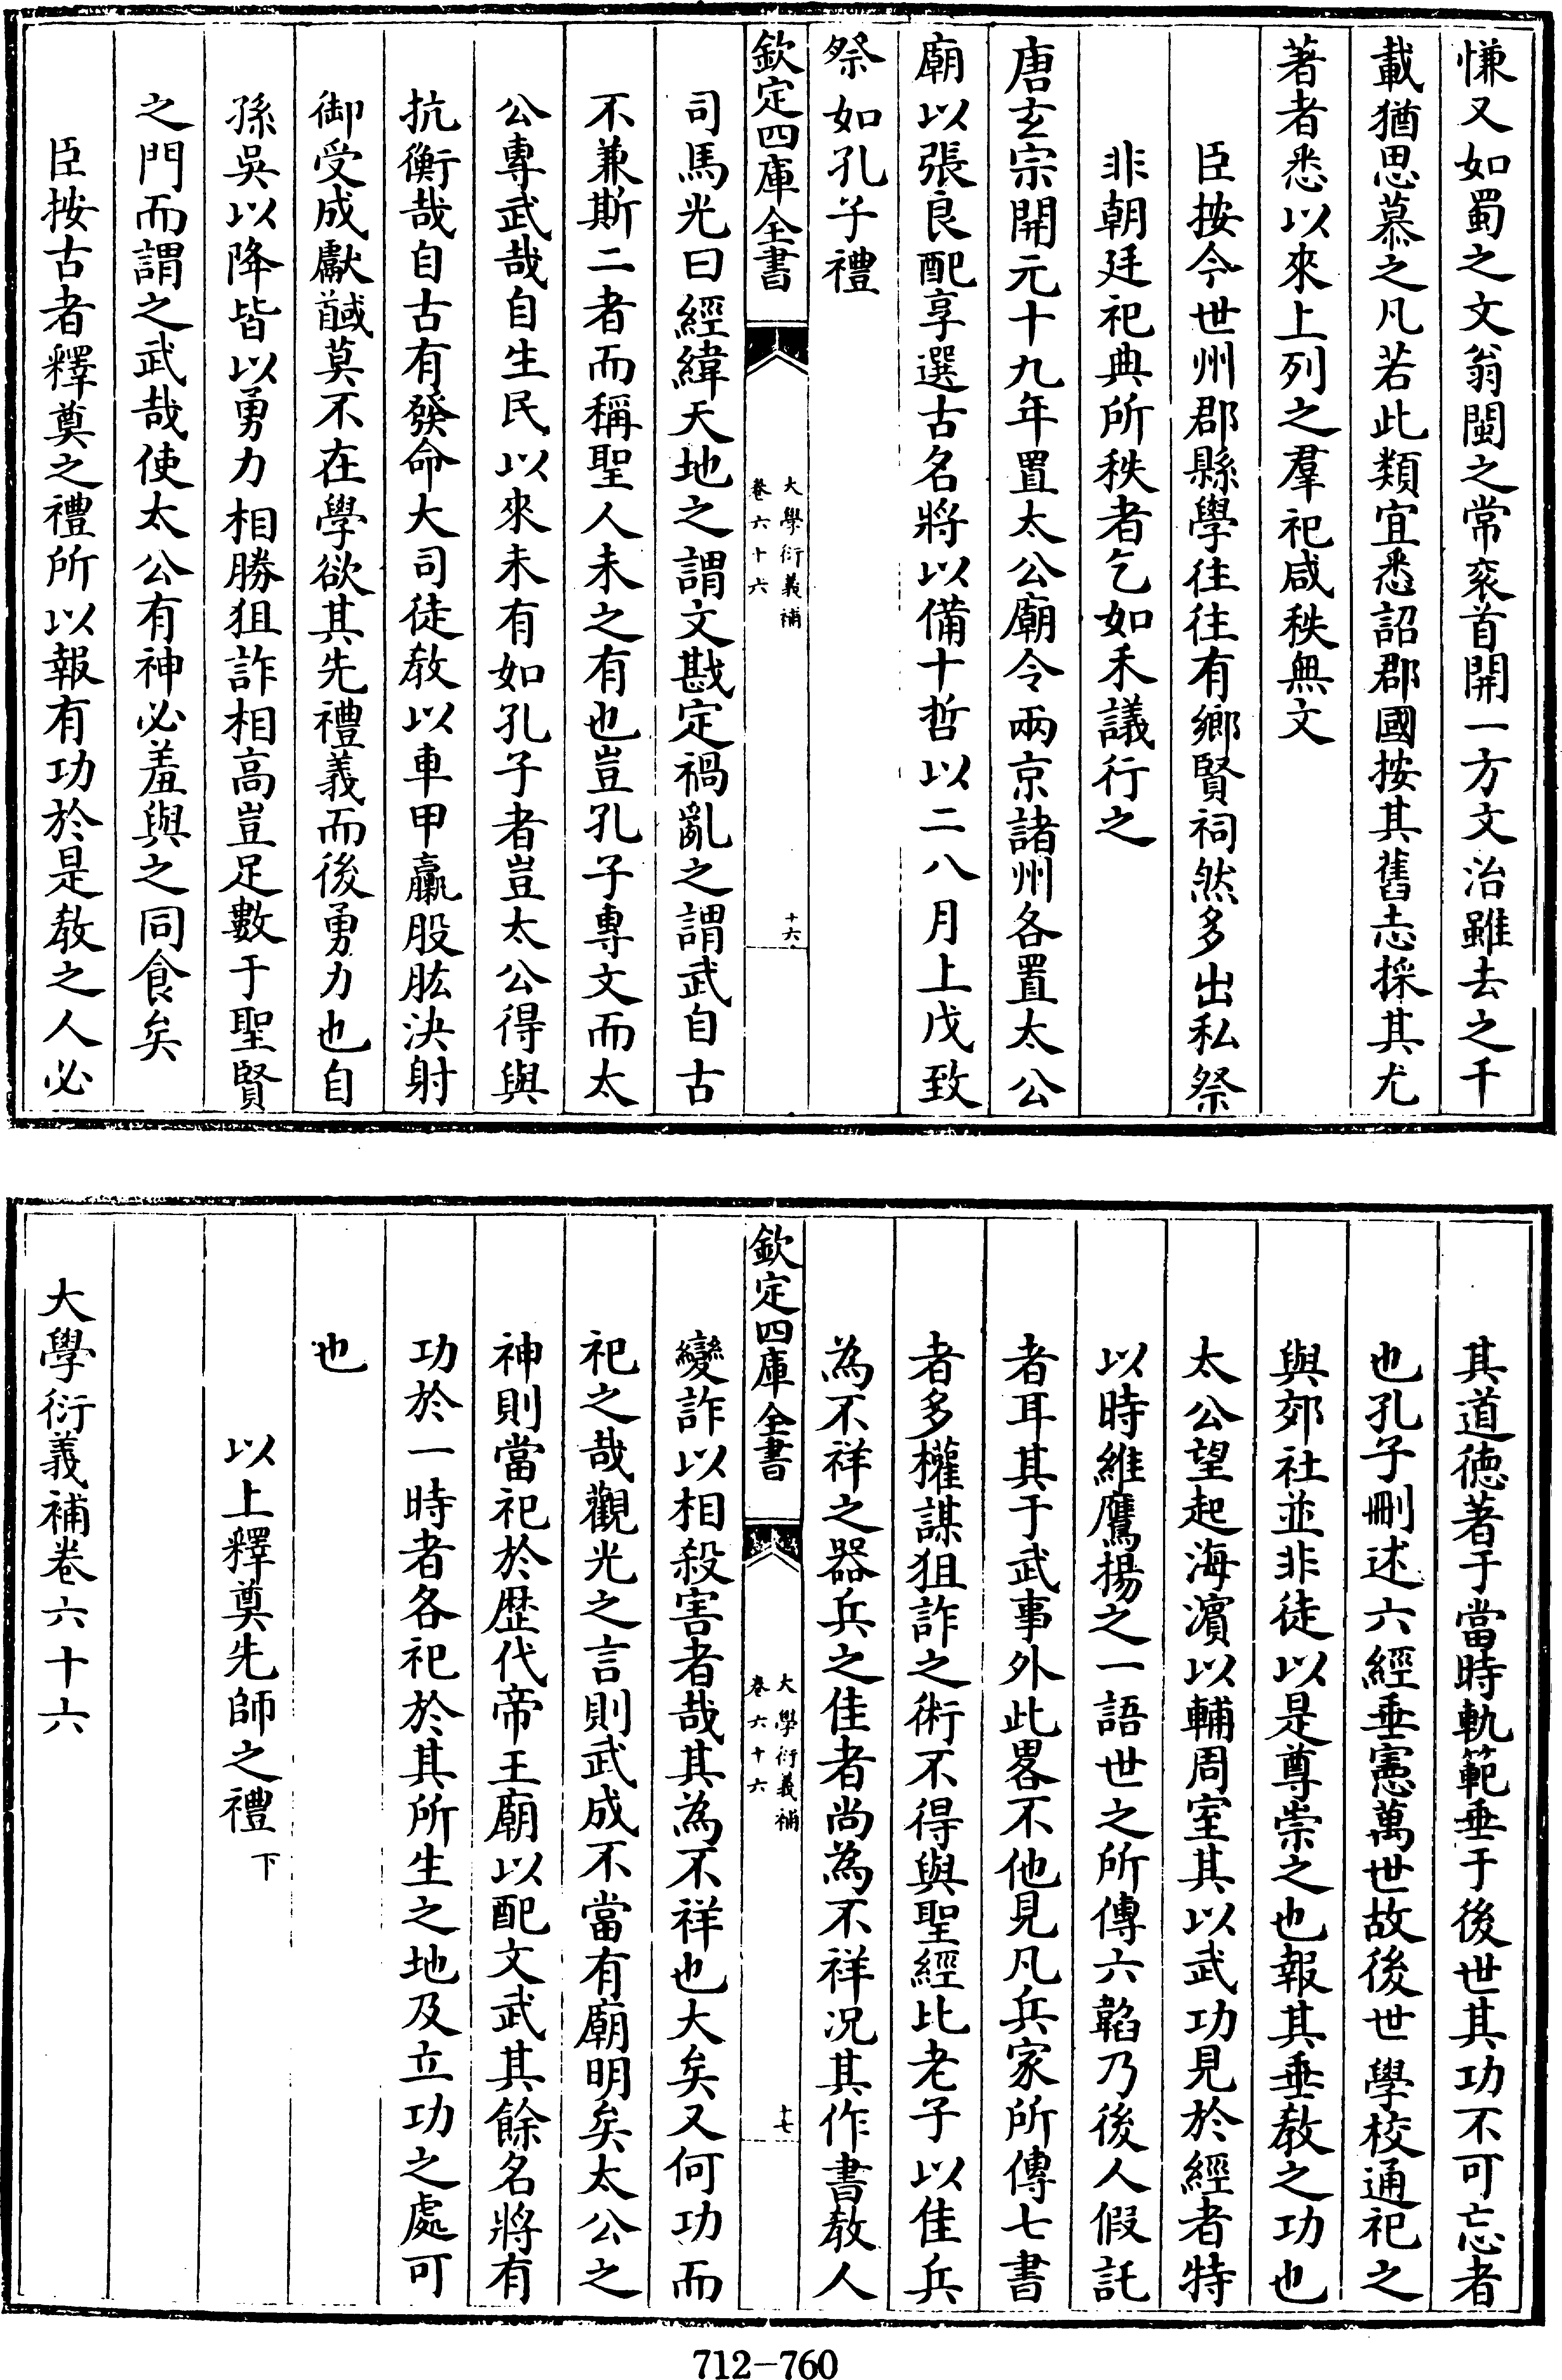 慊又如蜀之文翁閩之常衮首開一方文治雖去之千
載猶思慕之凡若此類宜悉詔郡國按其舊志採其尤
著者悉以來上列之羣祀咸秩無文
臣按今世州郡縣學往往有鄉賢祠然多出私祭
非朝廷祀典所秩者乞如禾議行之
唐玄宗開元十九年置太公廟令兩京諸州各置太公
廟以張良配享選古名將以備十哲以二八月上戊致
祭如孔子禮
欽定四庫全書
大學衍義補
卷六十六
十六
司馬光曰經緯天地之謂文戡定禍亂之謂武自古
不兼斯二者而稱聖人未之有也豈孔子專文而太
公專武哉自生民以來未有如孔子者豈太公得與
抗衡哉自古有發命大司徒教以車甲臝股肱決射
御受成獻馘莫不在學欲其先禮義而後勇力也自
孫吳以降皆以勇力相勝狙詐相高豈足數于聖賢
之門而謂之武哉使太公有神必羞與之同食矣
臣按古者釋奠之禮所以報有功於是教之人必
其道德著于當時軌範垂于後世其功不可忘者
也孔子刪述六經垂憲萬世故後世學校通祀之
與郊社並非徒以是尊崇之也報其垂教之功也
太公望起海濵以輔周室其以武功見於經者特
以時維鷹揚之一語世之所傳六韜乃後人假託
者耳其于武事外此畧不他見凡兵家所傳七書
者多權謀狙詐之術不得與聖經比老子以佳兵
為不祥之器兵之佳者尚為不祥况其作書教人
欽定四庫全書
大學衍義補
卷六十六
十七
變詐以相殺害者哉其為不祥也大矣又何功而
祀之哉觀光之言則武成不當有廟明矣太公之
神則當祀於歴代帝王廟以配文武其餘名將有
功於一時者各祀於其所生之地及立功之處可
也
以上釋奠先師之禮下
大學衍義補卷六十六
712-760